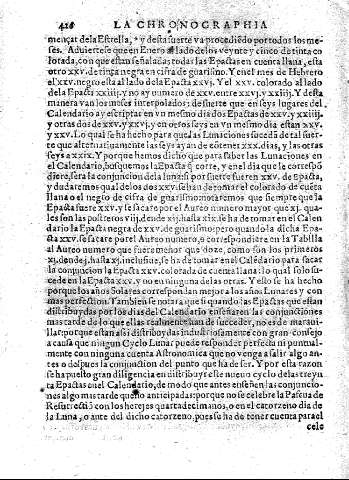 426 LA CHRONOGRAPHIA
mençar dela Estrella, y desta suerte va procediẽdo por todos los me-
ses. Aduiertese que en Enero al lado delos veynte y cinco de tinta co
lorada, con que estan señaladas todas las Epactas en cuenta llana, esta
otro xxv. de tinta negra en cifra de guarismo. Y en el mes de Hebrero
el xxv. negro esta al lado dela Epacta xxvj. Y el xxv. colorado al lado
dela Epacta xxiiij. y no ay numero de xxv. entre xxvj. y xxiiij. Y desta
manera van los meses interpolados: de suerte que en seys lugares del
Calendario ay escriptas en vn mesmo dia dos Epactas de xxv. y xxiiij.
y otras dos de xxv. y xxvj. y en otros seys en vn mesmo dia estan xxv.
y xxv. Lo qual se ha hecho para que las Lunaciones succedã de tal suer-
te que alternatiuamente las seys ayan de cõtener xxx. dias, y las otras
seys a xxix. Y porque hemos dicho que para saber las Lunaciones en
el Calendario, busquemos la Epacta q̃ corre, y en el dia que le correspõ
diere, sera la conjuncion dela luna: si por suerte fueren xxv. de Epacta,
y dudaremos qual delos dos xxv. se han de tomar el colorado de cuẽta
llana o el negro de cifra de guarismo: notaremos que siempre que la
Epacta fuere xxv. y se sacare por el Aureo numero mayor que xj. qua-
les son las postreros viij. desde xij. hasta xix. se ha de tomar en el Calen
dario la Epacta negra de xxv. de guarismo: pero quando la dicha Epa-
cta xxv. se sacare por el Aureo numero, o correspondiere en la Tablilla
al Aureo numero que fuere menor que doze, como son los primeros
xj. dende j. hasta xj. inclusiue, se ha de tomar en el Calẽdario para sacar
la conjuncion la Epacta xxv. colorada de cuenta llana: lo qual solo su-
cede en la Epacta xxv. y no en ninguna delas otras. Y esto se ha hecho
porque los años Solares correspondan mejor a los años Lunares y con
mas perfection. Tambien se notara que si quando las Epactas que estan
distribuydas por los dias del Calendario enseñaren las conjunctiones
mas tarde de lo que ellas realmente han de succeder, no es de marauí-
llar: porque estan assi distribuydas industriosamente con gran consejo
a causa que ningun Cyclo Lunar puede responder perfecta ni puntual-
mente con ninguna cuenta Astronomica que no venga a salir algo an-
tes o despues la conjunction del punto que ha de ser. Y por esta razon
se ha puesto gran diligencia en distribuyr este nueuo cyclo de las treyn
ta Epactas en el Calendario, de modo que antes enseñen las conjunctio-
nes algo mas tarde que no anticipadas: porque no se celebre la Pascua de
Resurrectiõ con los herejes quartadecimanos, o en el catorzeno dia de
la Luna, o ante del dicho catorzeno, pues se ha de tener cuenta para el
cele